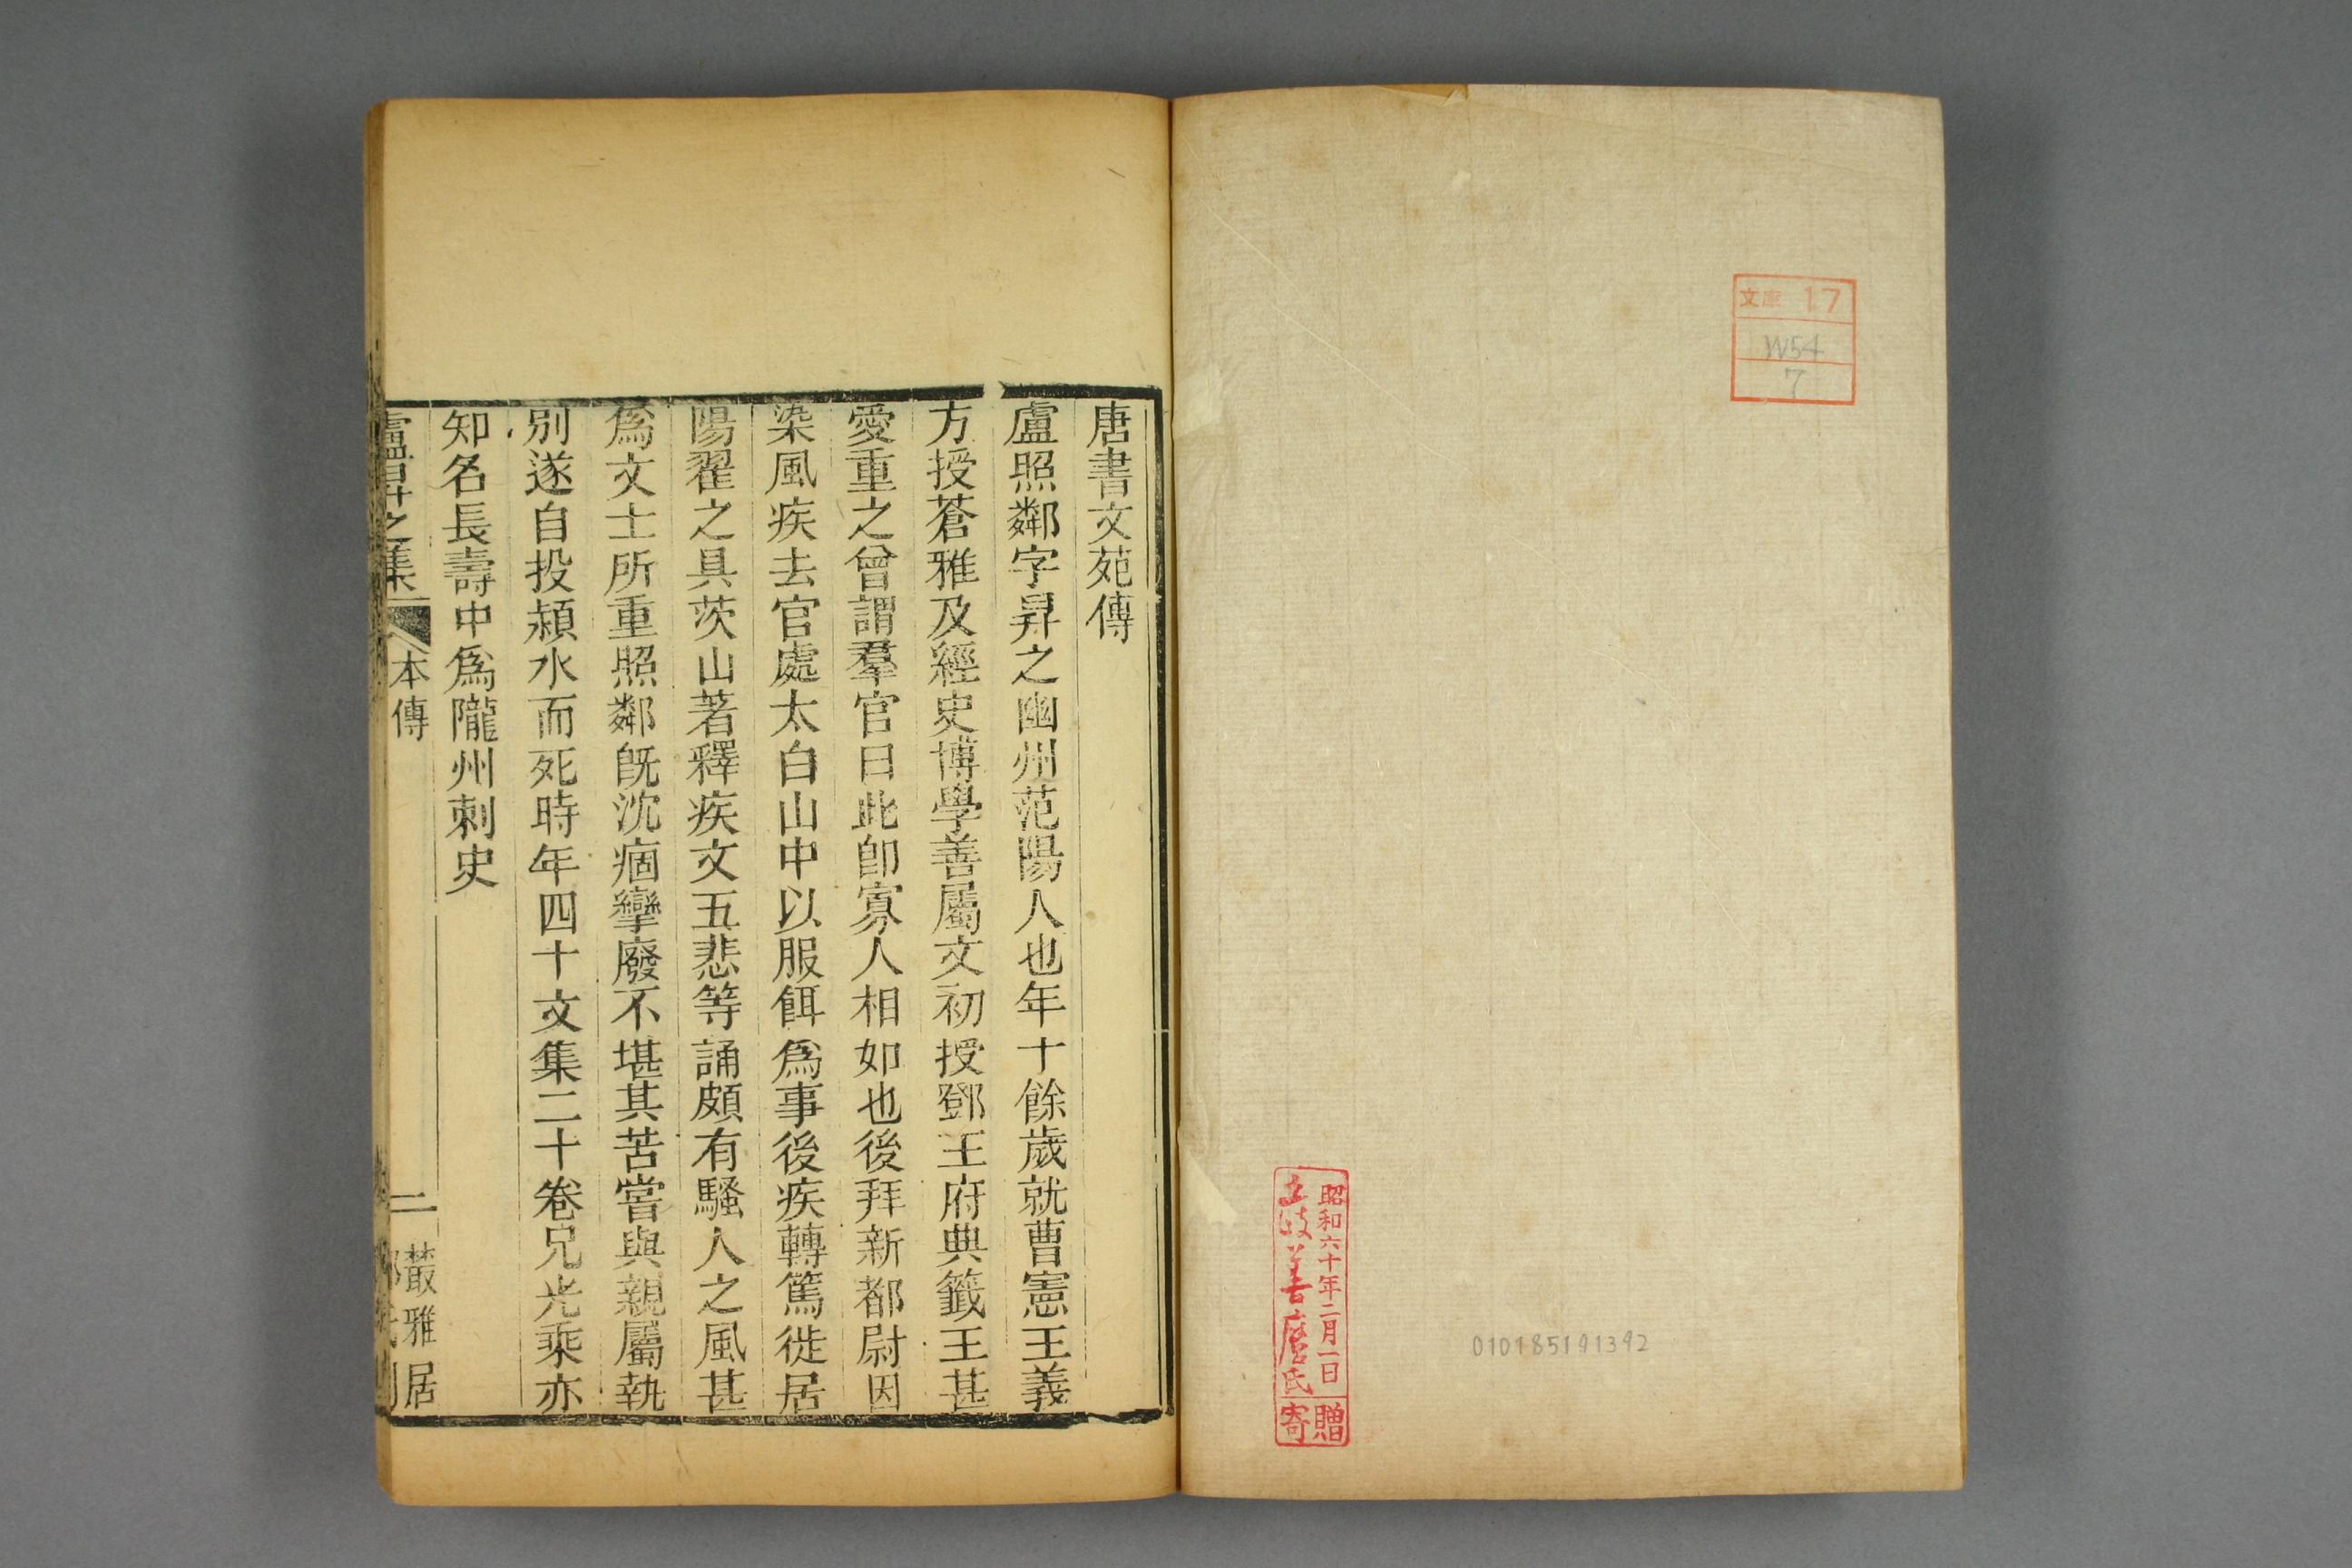 文庫 17
W54
7
昭和六十年二月一日
善麿氏
寄贈
010185191392
唐書文苑傳
盧照鄰字昇之幽州范陽人也年十餘歲就曹憲王義
方授蒼雅及經史博學善屬文初授鄧王府典籤王甚
愛重之曾謂羣官曰此卽寡人相如也後拜新都尉因
染風疾去官處太白山中以服餌爲事後疾轉篤徙居
陽翟之具茨山著釋疾文五悲等誦頗有騷人之風甚
爲文士所重照鄰旣沈痼攣廢不堪其苦嘗與親屬執
別遂自投潁水而死時年四十文集二十卷兄光乘亦
知名長壽中爲隴州刺史
盧昇之集 本傳 二 叢雅居